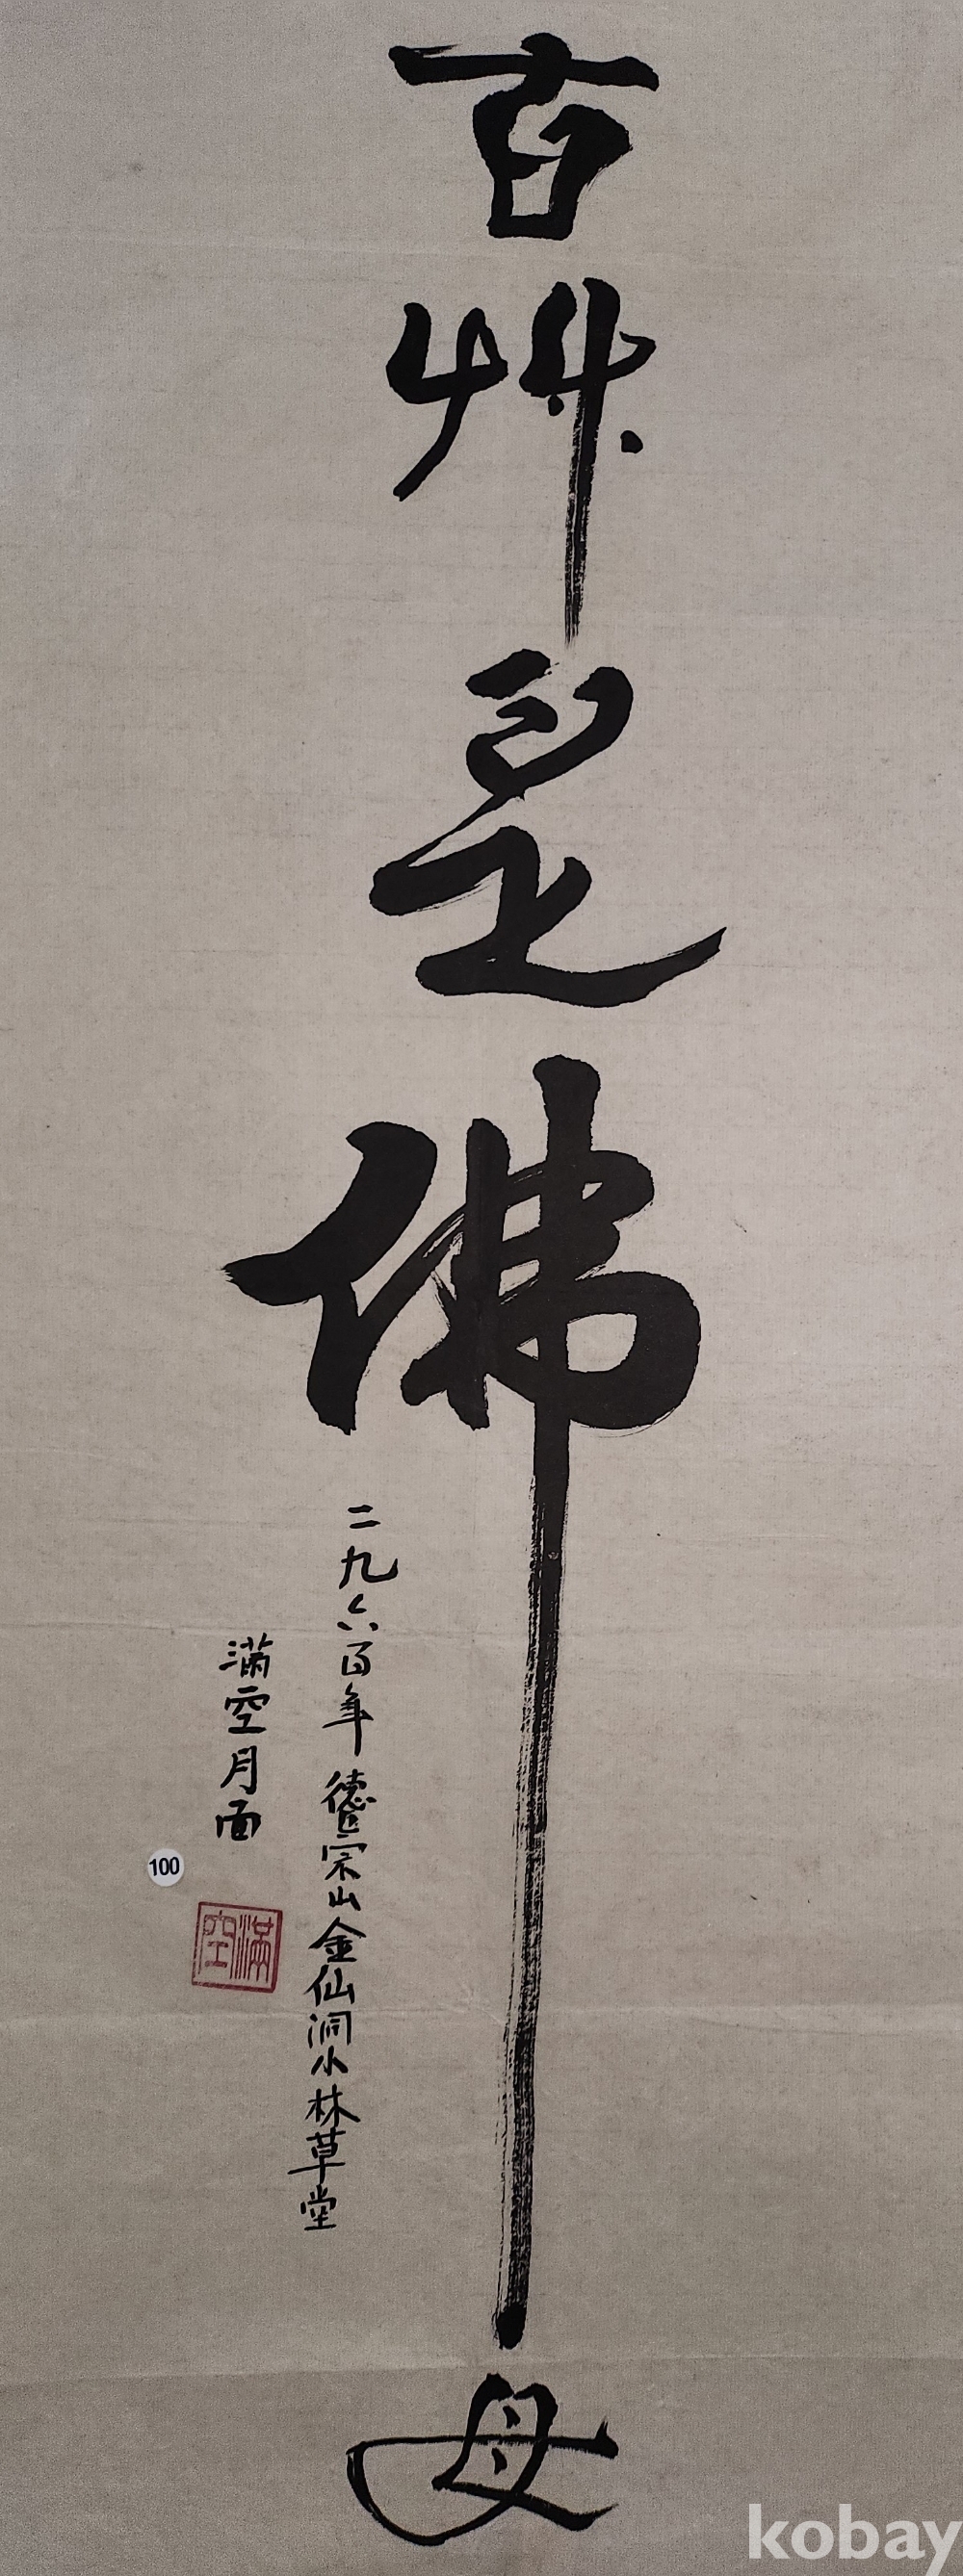 百艸是佛母
二九六百年 德崇山金仙洞小林草堂
滿空月面
100
滿空
kobay